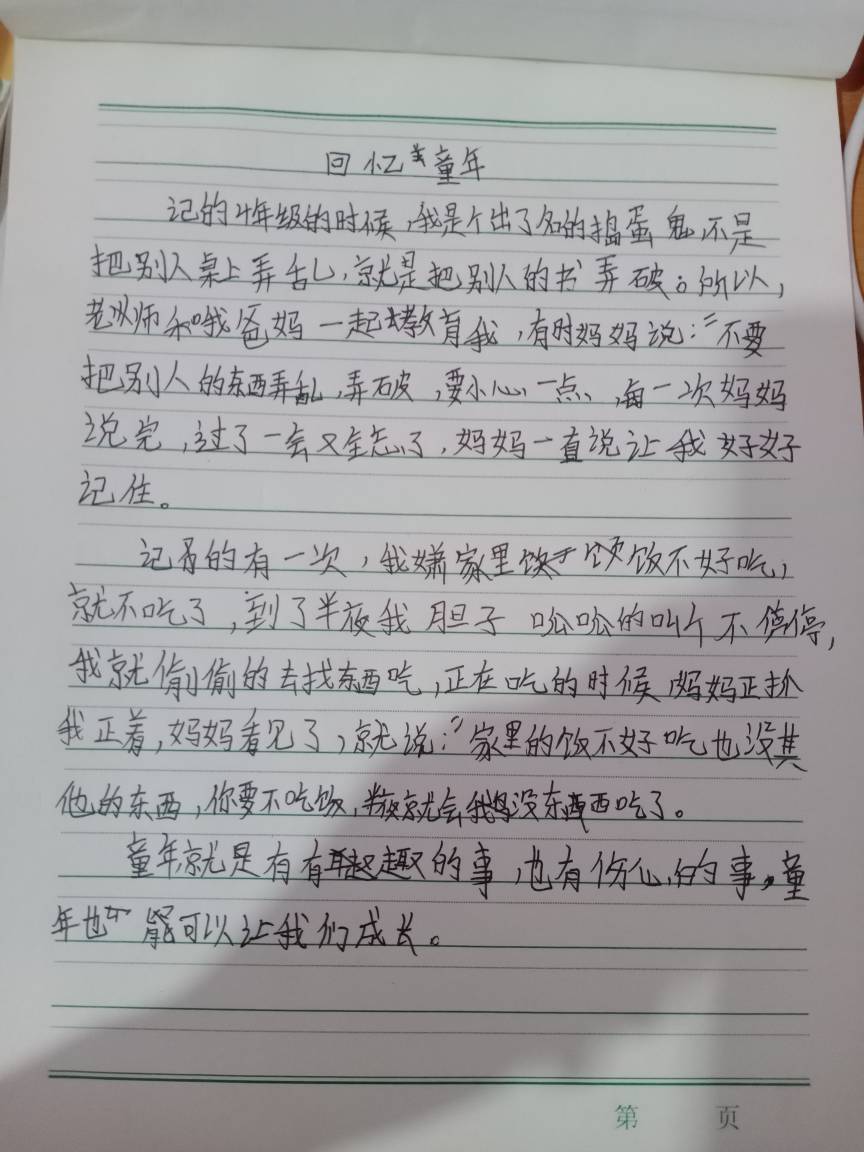 回忆童年
记的4年级的时候,我是个出了名的捣蛋鬼,不是
把别人桌上弄乱,就是把别人的书弄破。所以,
老师和我爸妈一起教育我,有时妈妈说:“不要
把别人的东西弄乱,弄破,要小心一点、每一次妈妈
说完,过了一会又全忘了,妈妈一直说让我好好
记住。
记的有一次,我嫌家里饭不好吃,
就不吃了,到了半夜我胆子呱呱的叫个不停,
我就偷偷的去找东西吃,正在吃的时候妈妈正扒
我正着,妈妈看见了,就说:“家里的饭不好吃也没其
他的东西,你要不吃饭,半夜就会没东西吃了。
童年就是有有趣的事,也有伤心的事,童
年也可以让我们成长。
第 页